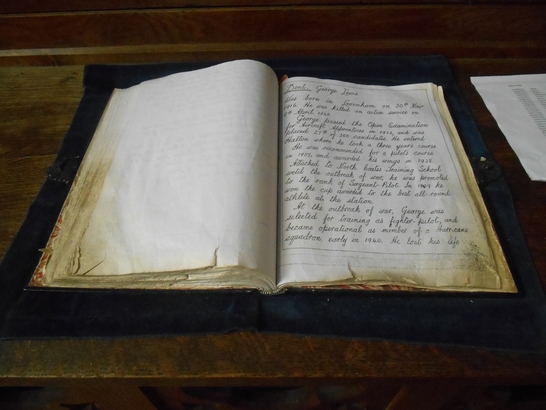 Deal, George Louis
was born in Lavenham on 20th Nov
1916. He was killed on active service on
9th April 1940.
George passed the Open Examination
for Aircraft Apprentices in 1932, and was
placed 27th of 320 candidates. He entered
Halton where he took a three years course
He was recommended for a pilot's course
in 1937, and awarded his wings in 1938.
Attached to North Training School
until the outbreak of war, he was promoted
to the rank of Sergeant Pilot. In 1939 he
won the cup awarded to the best all-round
athlete at the station.
At the outbreak of war, George was
selected for training as fighter pilot, and
became operational as member of a Hurricane
squadron early in 1940. He lost his life